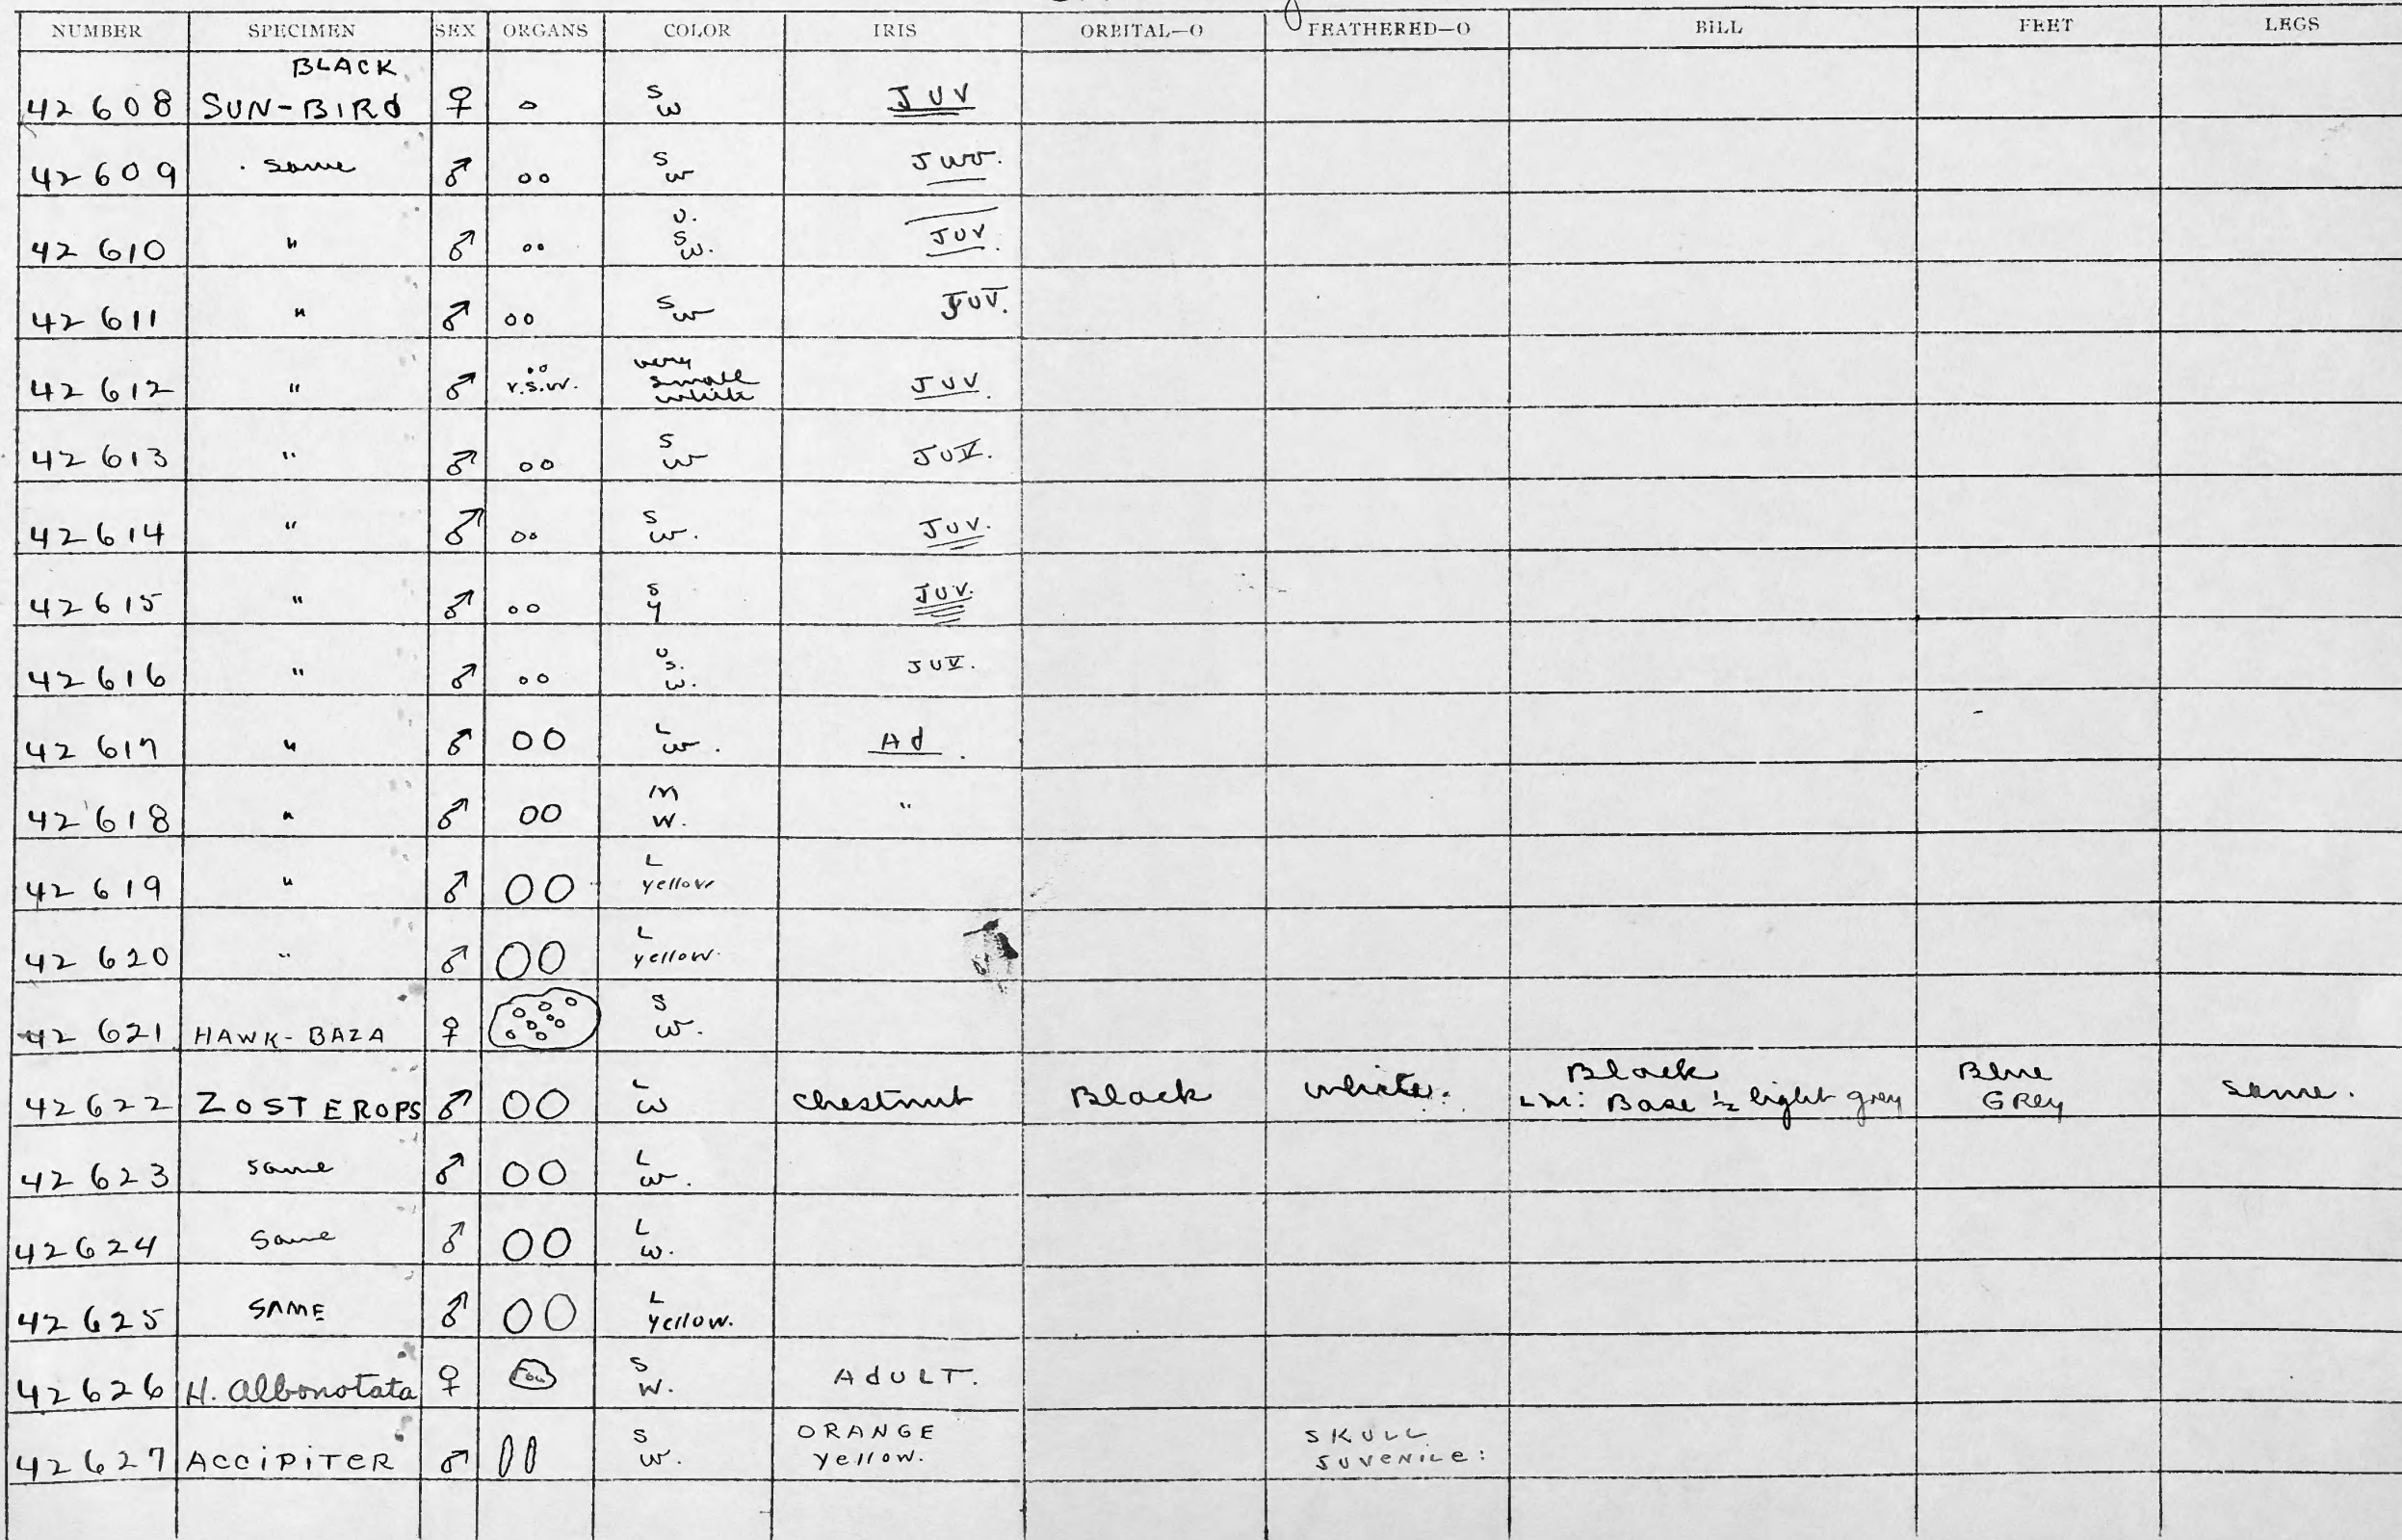 NUMBER SPECIMEN SEX ORGANS COLOR IRIS ORBITAL—O FEATHERED—O BILL FEET LEGS
BLACK
42608 SUN-BIRd ♀ o S JUV
w
42609 same ♂ oo S Juv.
w
42610 " ♂ oo V. JUV.
S
w.
42611 " ♂ oo S JUV.
w
42612 " ♂ oo very JUV.
v.s.w. small
white
42613 " ♂ oo S JUV.
w
42614 " ♂ oo S JUV.
w.
42615 " ♂ oo S JUV.
y
42616 " ♂ oo V JUV.
S.
w.
42617 " ♂ OO L Ad.
w.
42618 " ♂ OO M "
W.
42619 " ♂ OO L
yellow
42620 " ♂ OO L
yellow.
42621 HAWK-BAZA ♀ S
w.
42622 ZOSTEROPS ♂ OO L chestnut Black white. Black Blue same.
w L.M: Base ½ light grey GREY
42623 same ♂ OO L
w.
42624 Same ♂ OO L
w.
42625 SAME ♂ OO L
yellow.
42626 H. albonotata ♀ S AdULT.
W.
42627 ACCiPiTeR ♂ S ORANGE SKULL
w. yellow. JUVENILE: